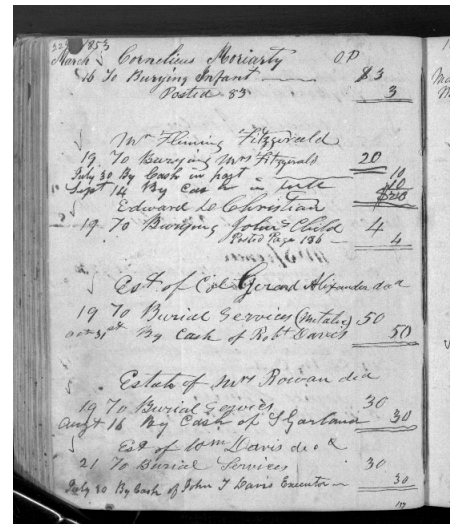 1853
March Cornelius Moriarty OP
16 To Burying Infant $3
Posted 83 3
Mr Fleming Fitzgerald
19 To Burying Mrs Fitzgerald 20
July 30 By Cash in part 10
Sept 14 By Cash in full 10
$20
Edward D Christian
19 To Burying John's Child 4
Posted Page 136 4
Est of Col Gerard Alexander decd
19 To Burial Services (Metalic) 50
Oct 31st By Cash of Robt Davis 50
Estate of Mrs Rowan decd
19 To Burial Services 30
Augt 16 By Cash of S Garland 30
Est of Wm Davis decd
21 To Burial Services 30
July 30 By Cash of John T Davis Executor 30